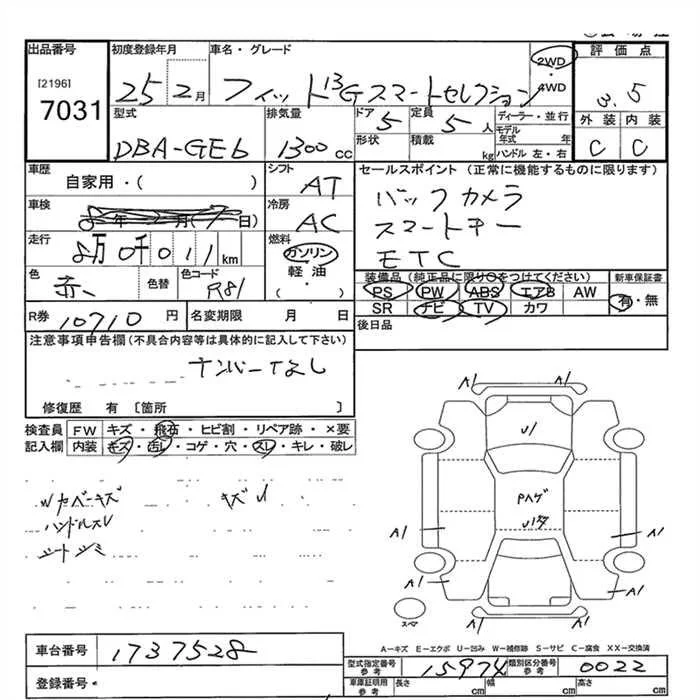 出品番号 初度登録年月 車名・グレード 2WD 評価点
[2196] 25 2月 フィット 13G スマートセレクション ・4WD 3.5
7031 型式 排気量 ドア 定員 ディーラー・並行 外装 内装
DBA-GE6 1300cc 5 5人 モデル年式 年 C C
形状 積載 kg ハンドル 左・右
車歴 シフト セールスポイント (正常に機能するものに限ります)
自家用・( ) AT バックカメラ
車検 冷房 スマートキー
年 月( 日) AC ETC
走行 燃料 装備品(純正品に限り○をつけてください) 新車保証書
8万0千011km ガソリン PS PW ABS エアB AW 有・無
色 色替 色コード 軽油・ SR ナビ TV カワ
赤 R81 ( )
R券 10710円 名変期限 月 日 後日品
注意事項申告欄(不具合内容等は具体的に記入して下さい)
ナンバーなし
修復歴 有〔箇所 〕
検査員 FW キズ・飛石・ヒビ割・リペア跡・×要
記入欄 内装 キズ・汚レ・コゲ・穴・スレ・キレ・破レ
A1 A1
U1
Wカバーキズ キズU
Pハゲ
ハンドルスレ
A1 A1
シートシミ
A1 A1
スペア
A-キズ E-エクボ U-凹み W-補修跡 S-サビ C-腐食 XX-交換済
車台番号 1737528
型式指定番号 参考 15974 類別区分番号 参考 0022
登録番号
車庫証明用 参考 長さ cm 幅 cm 高さ cm